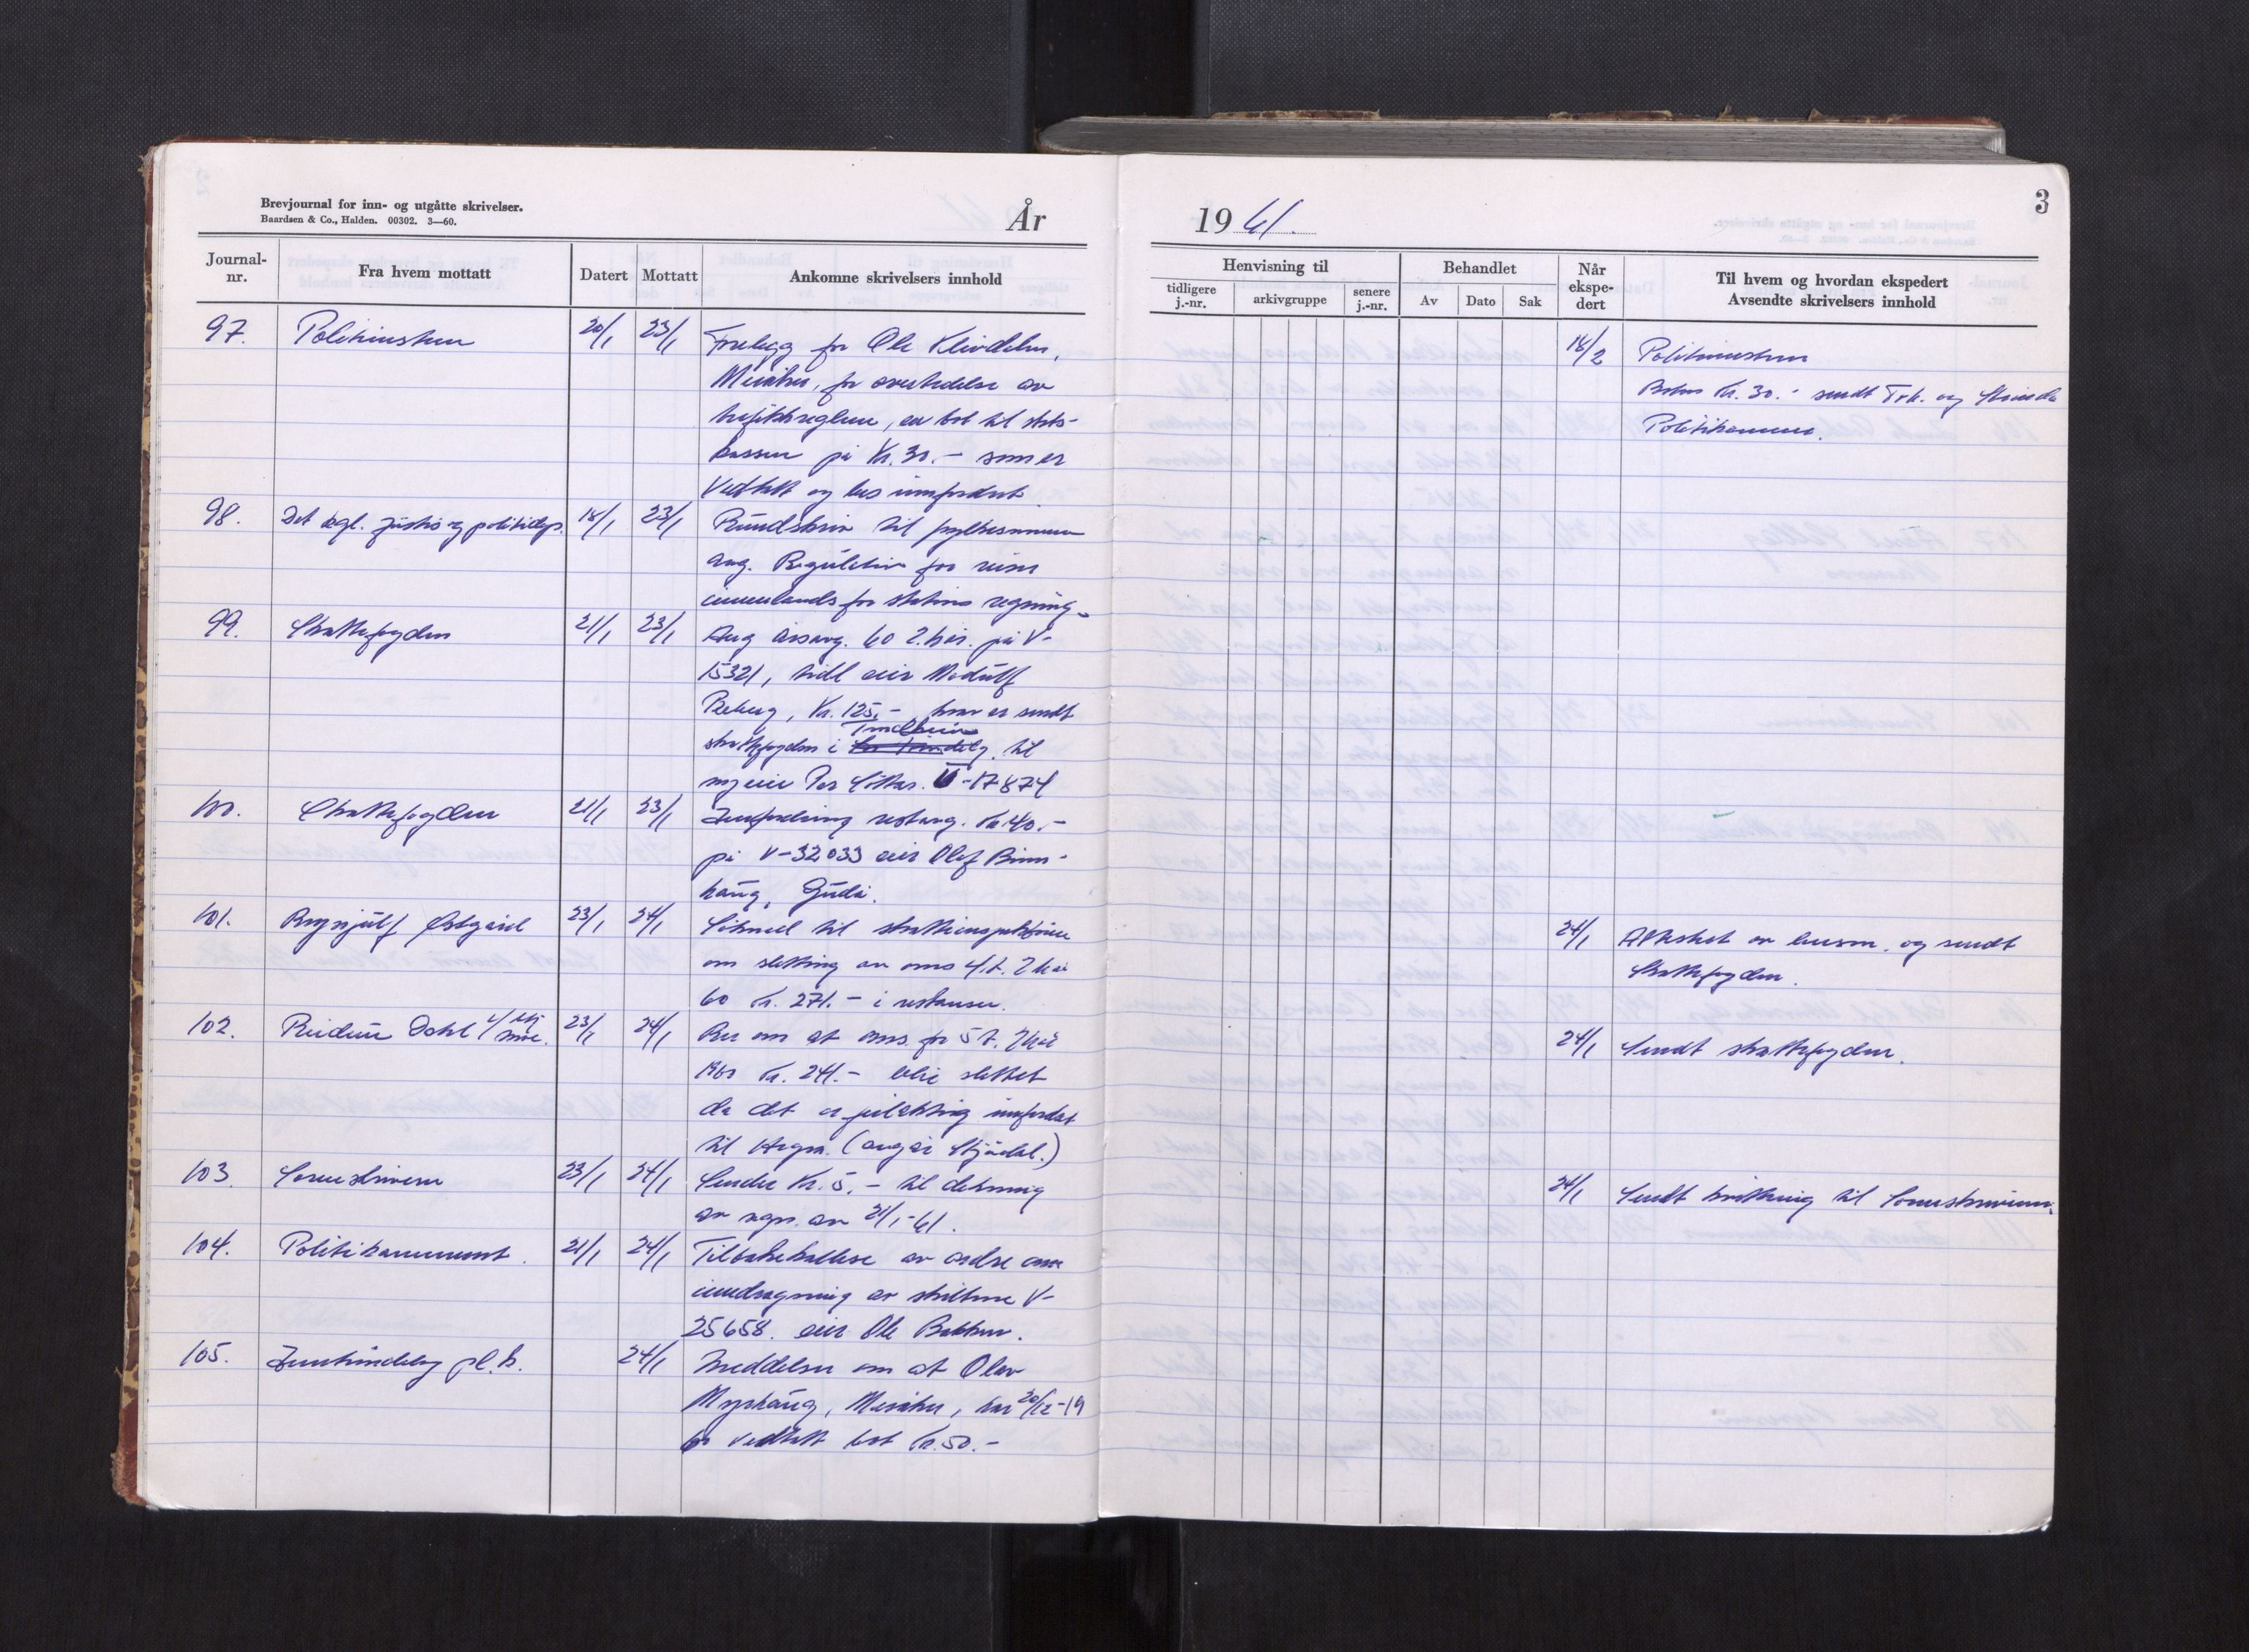 Brevjournal for inn- og utgåtte skrivelser.
Baardsen & Co., Halden. 00302. 3—60.
År
Journal-
nr.
Fra hvem mottatt
Datert
Mottatt
Ankomne skrivelsers innhold
97. Politimesteren 20/1 23/1 Forelegg for Ole
Meråker, for overtredelse av
trafikkreglene, en bot til stats-
kassen på Kr. 30.- som er
Vedtatt og bes innfordret
98. Det kgl. justis og politidep. 18/1 23/1 Rundskriv til fylkesmennene
ang. Regulativ for reiser
innenlands for statens regning.
99. Skattefogden 21/1 23/1 Ang årsavg. 60 2. hår. på V-
15321, tidl eier
Kr. 125.- krav er sendt
skattefogden i Trondheim til
ny eier Per U-17874
100. Skattefogden 21/1 23/1 Innfordring restavg. Kr 40.-
på V-32033 eier Olaf
haug, Gudå.
101. Brynjulf Østgård 23/1 24/1 Søknad til skatteinspektøren
om sletting av oms 4. t. 2 hår
60 Kr. 271.- i restanser.
102. Reidun Dahl 23/1 24/1 Ber om at oms. for 5 t. 2 hår
1960 Kr. 241.- blir slettet
da det er feilaktig innfordret
til Hegra. (angår Stjørdal.)
103. Sorenskriveren 23/1 24/1 Sender Kr. 5.- til dekning
av regn. av 21/1-61.
104. Politikammeret. 21/1 24/1 Tilbakekallelse av ordre om
inndragning av skiltene V-
25658. eier Ole Bakken.
105. Innherred pl.k. 24/1 Meddelser om at Olav
Myrhaug, Meråker, har 20/12-19
60 vedtatt bot Kr. 50.-
19 61.
3
Henvisning til
Behandlet
Når
ekspe-
dert
Til hvem og hvordan ekspedert
Avsendte skrivelsers innhold
tidligere
j.-nr.
arkivgruppe
senere
j.-nr.
Av
Dato
Sak
18/2 Politimesteren
Boten Kr. 30.- sendt
Politikammer.
24/1 og sendt
Skattefogden.
24/1 Sendt skattefogden.
24/1 Sendt kvittering til Sorenskriveren.